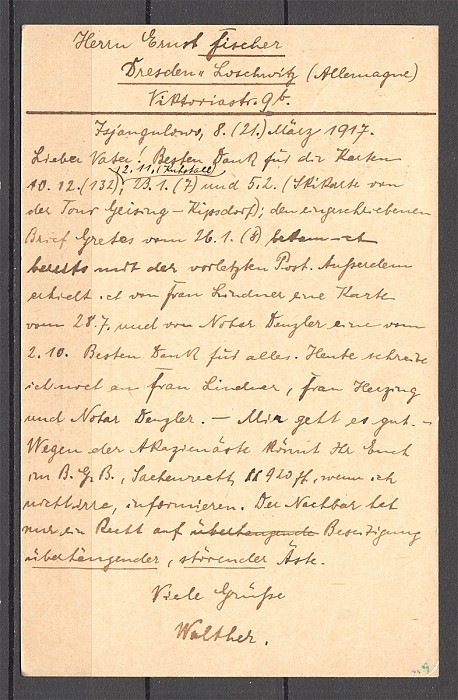 Herrn Ernst Fischer
Dresden-Loschwitz (Allemagne)
Viktoriastr. 9b.
Isjangulowo, 8. (21.) März 1917.
Lieber Vater! Besten Dank für die Karten
2.11. (Kuhstall)
10.12. (132), 23.1. (7) und 5.2. (Skikarte von
der Tour Geising – Kipsdorf); den eingeschriebenen
Brief Gretes vom 26.1. (8) bekam ich
bereits mit der vorletzten Post. Außerdem
erhielt ich von Frau Lindner eine Karte
vom 28.7. und von Notar Dengler eine vom
2.10. Besten Dank für alles. Heute schreibe
ich noch an Frau Lindner, Frau Herzing
und Notar Dengler. – Mir geht es gut. –
Wegen der Akazienäste könnt Ihr Euch
im B.G.B., Sachenrecht, §§ 920 ff, wenn ich
nicht irre, informieren. Der Nachbar hat
nur ein Recht auf überhängende Beseitigung
überhängender, störender Äste.
Viele Grüße
Walther.